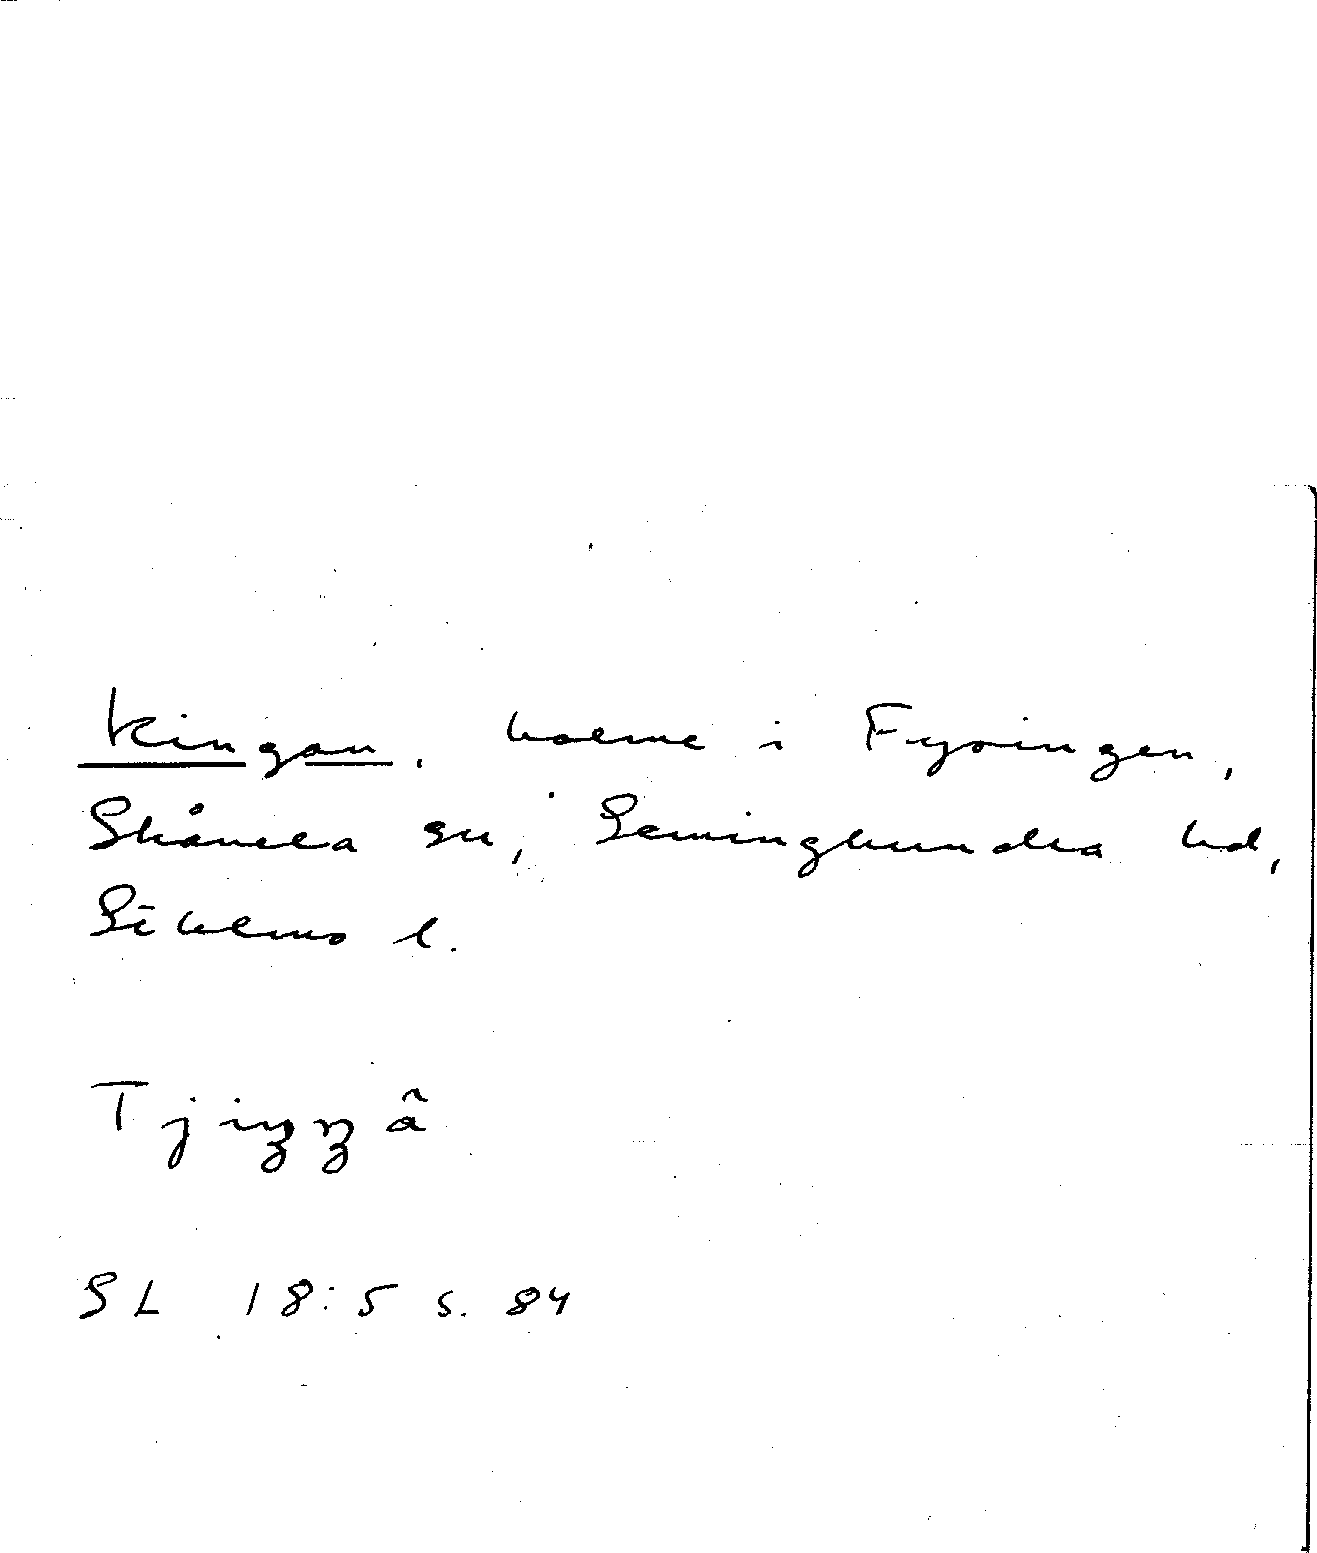 Kingan, holme i Fysingen,
Skånela sn, Seminghundra hd,
Sthlms l.
Tjiŋŋâ
SL 18:5 s. 84